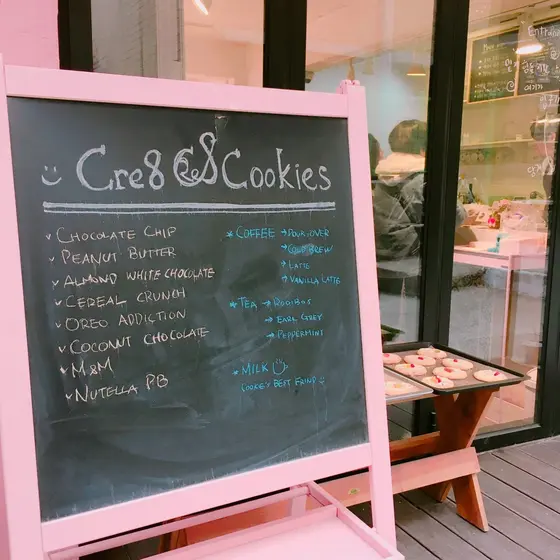 Cre8 C8 Cookies
CHOCOLATE CHIP
PEANUT BUTTER
ALMOND WHITE CHOCOLATE
CEREAL CRUNCH
OREO ADDICTION
COCONUT CHOCOLATE
M&M
NUTELLA PB
* COFFEE → POUR OVER
→ COLD BREW
→ LATTE
→ VANILLA LATTE
* TEA → ROOIBOS
→ EARL GREY
→ PEPPERMINT
* MILK
COOKEY BEST FRIND